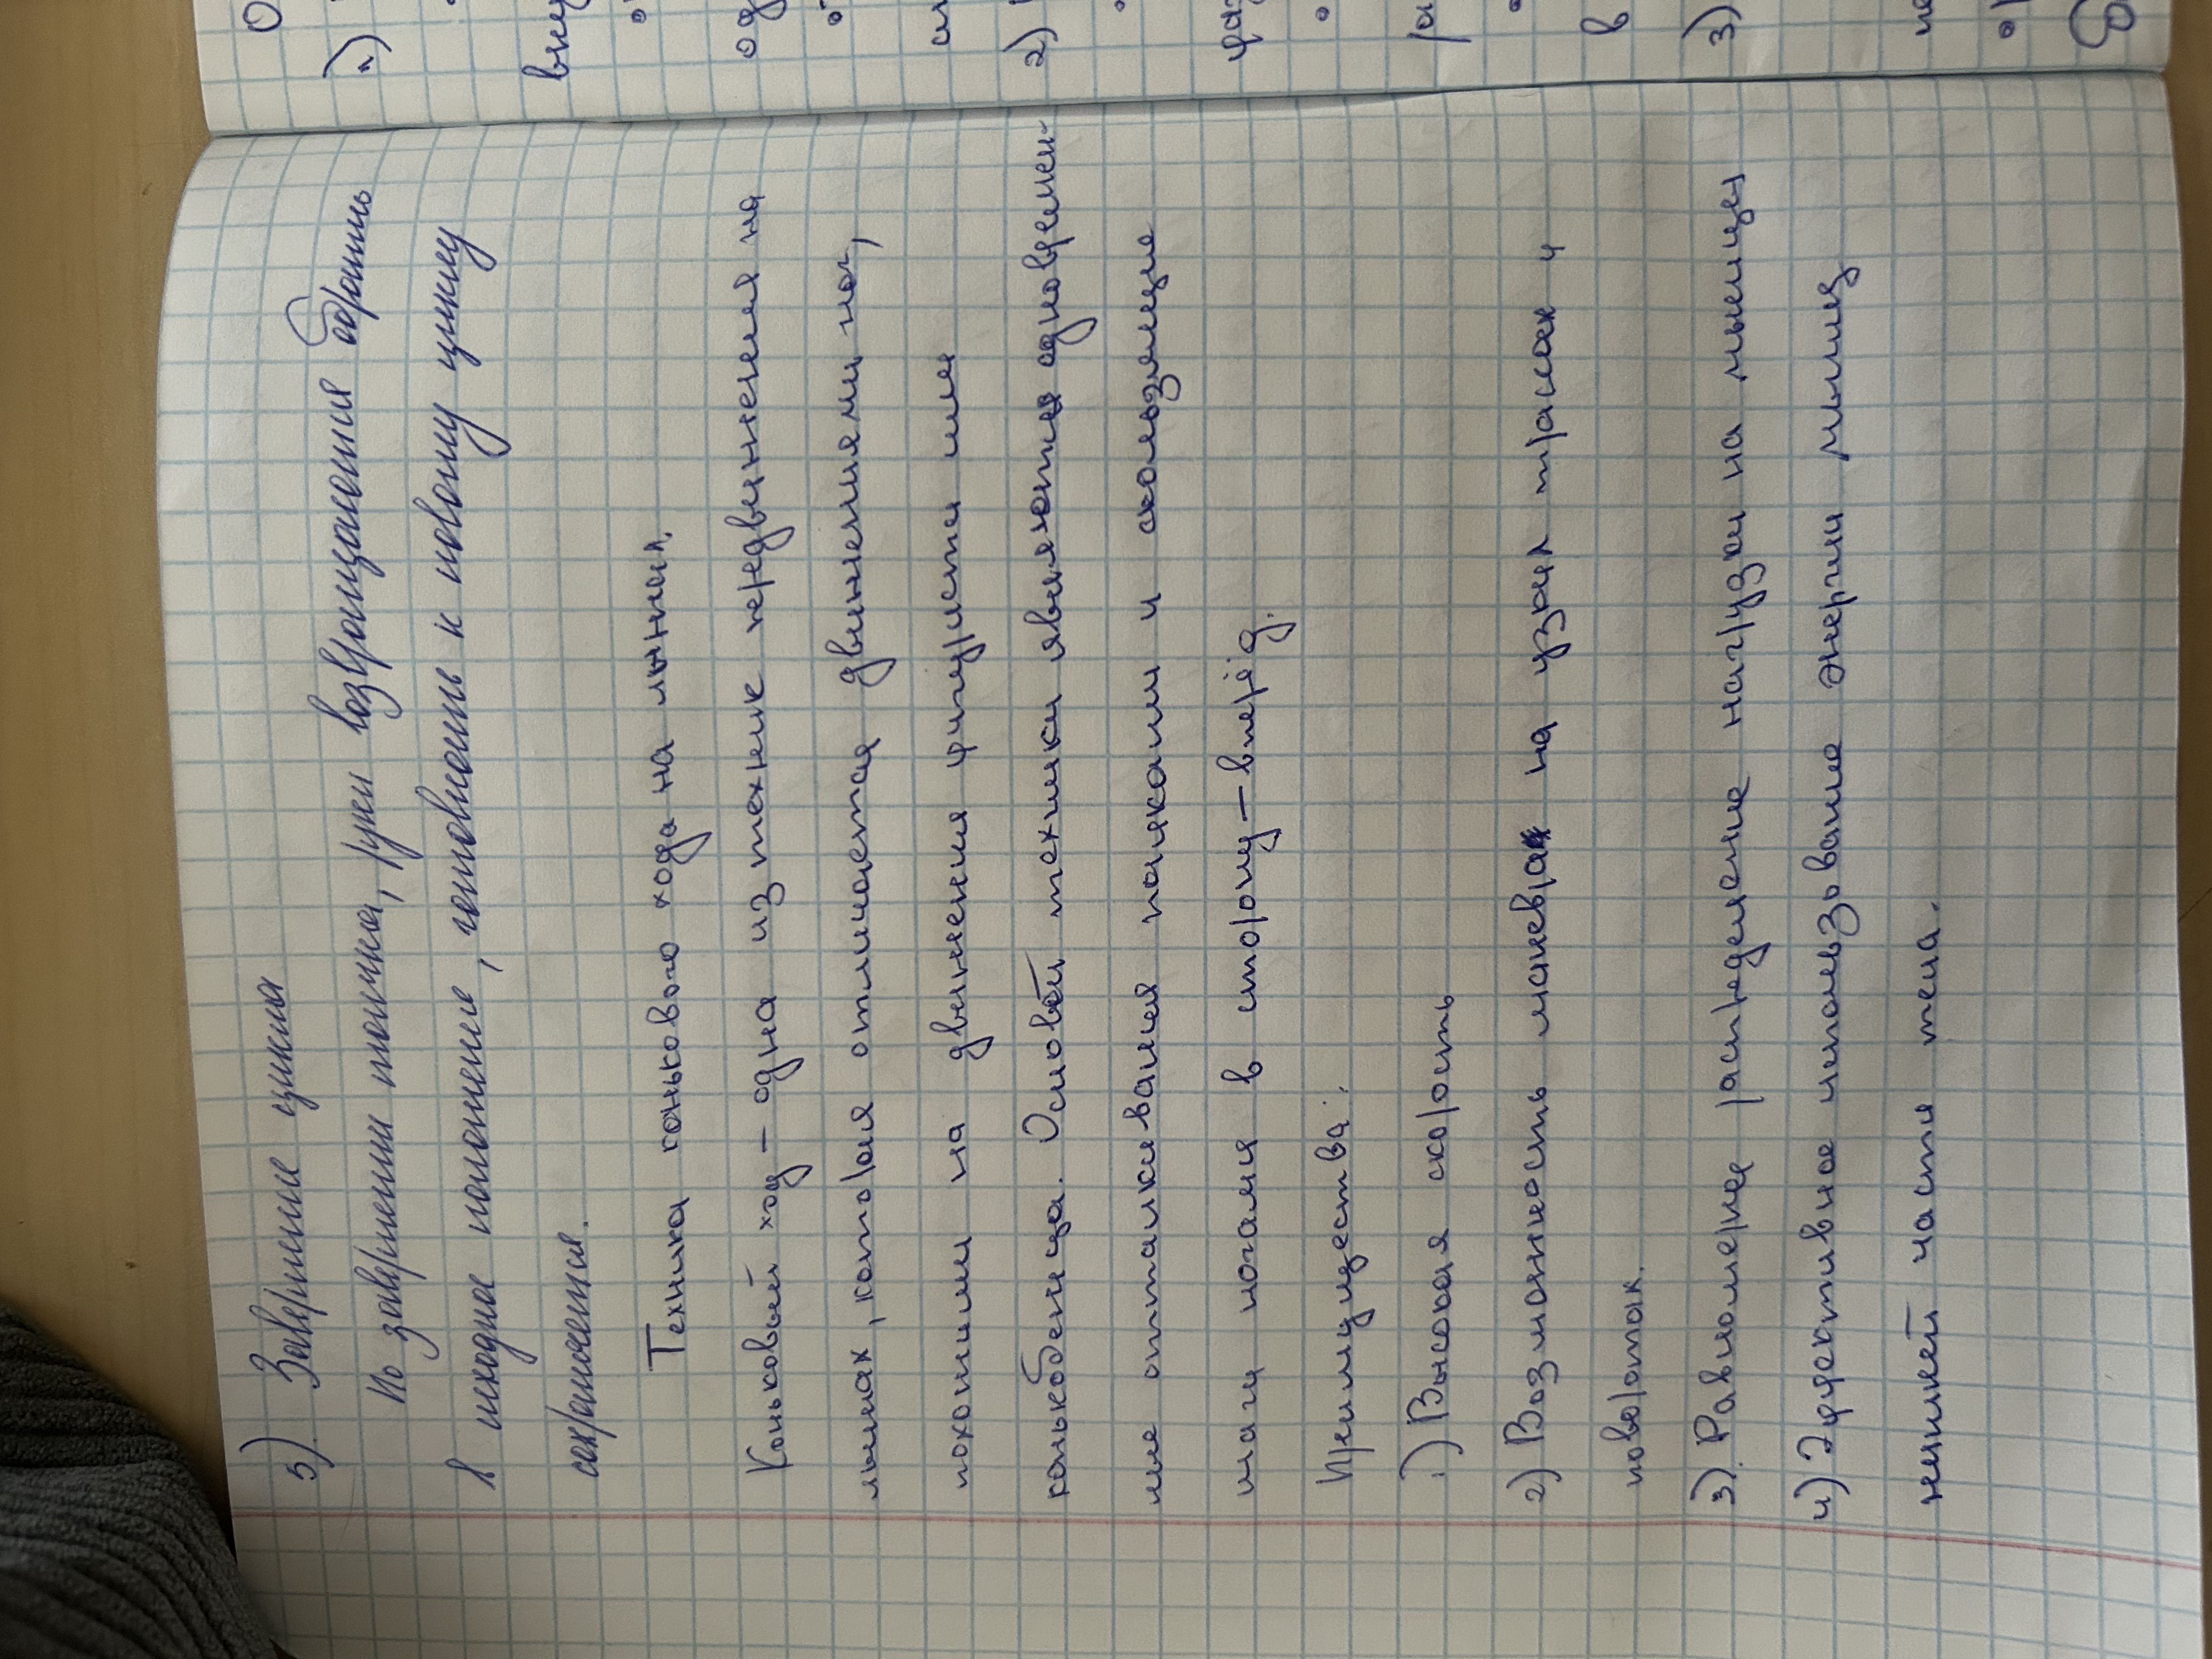 5). Завершение цикла
По завершении толчка, руки возвращаения обратно
в исходное положение, готовность к новому циклу
сокращения.
Техника конькового хода на лыжах.
Коньковый ход – одна из техник передвижения на
лыжах, которая отличается движениями ног,
похожими на движения фигуриста или
конькобежца. Основой техники являются одновремен-
ные отталкивания палками и скользящие
шаги ногами в сторону – вперёд.
Преимущества:
1) Высокая скорость
2) Возможность маневрах на узких трассах и
поворотах.
3). Равномерное распределение нагрузки на мышцы
4) Эффективное использование энергии мышц
нижней части тела.
1)
вниз
од
2)
ра
в
3)